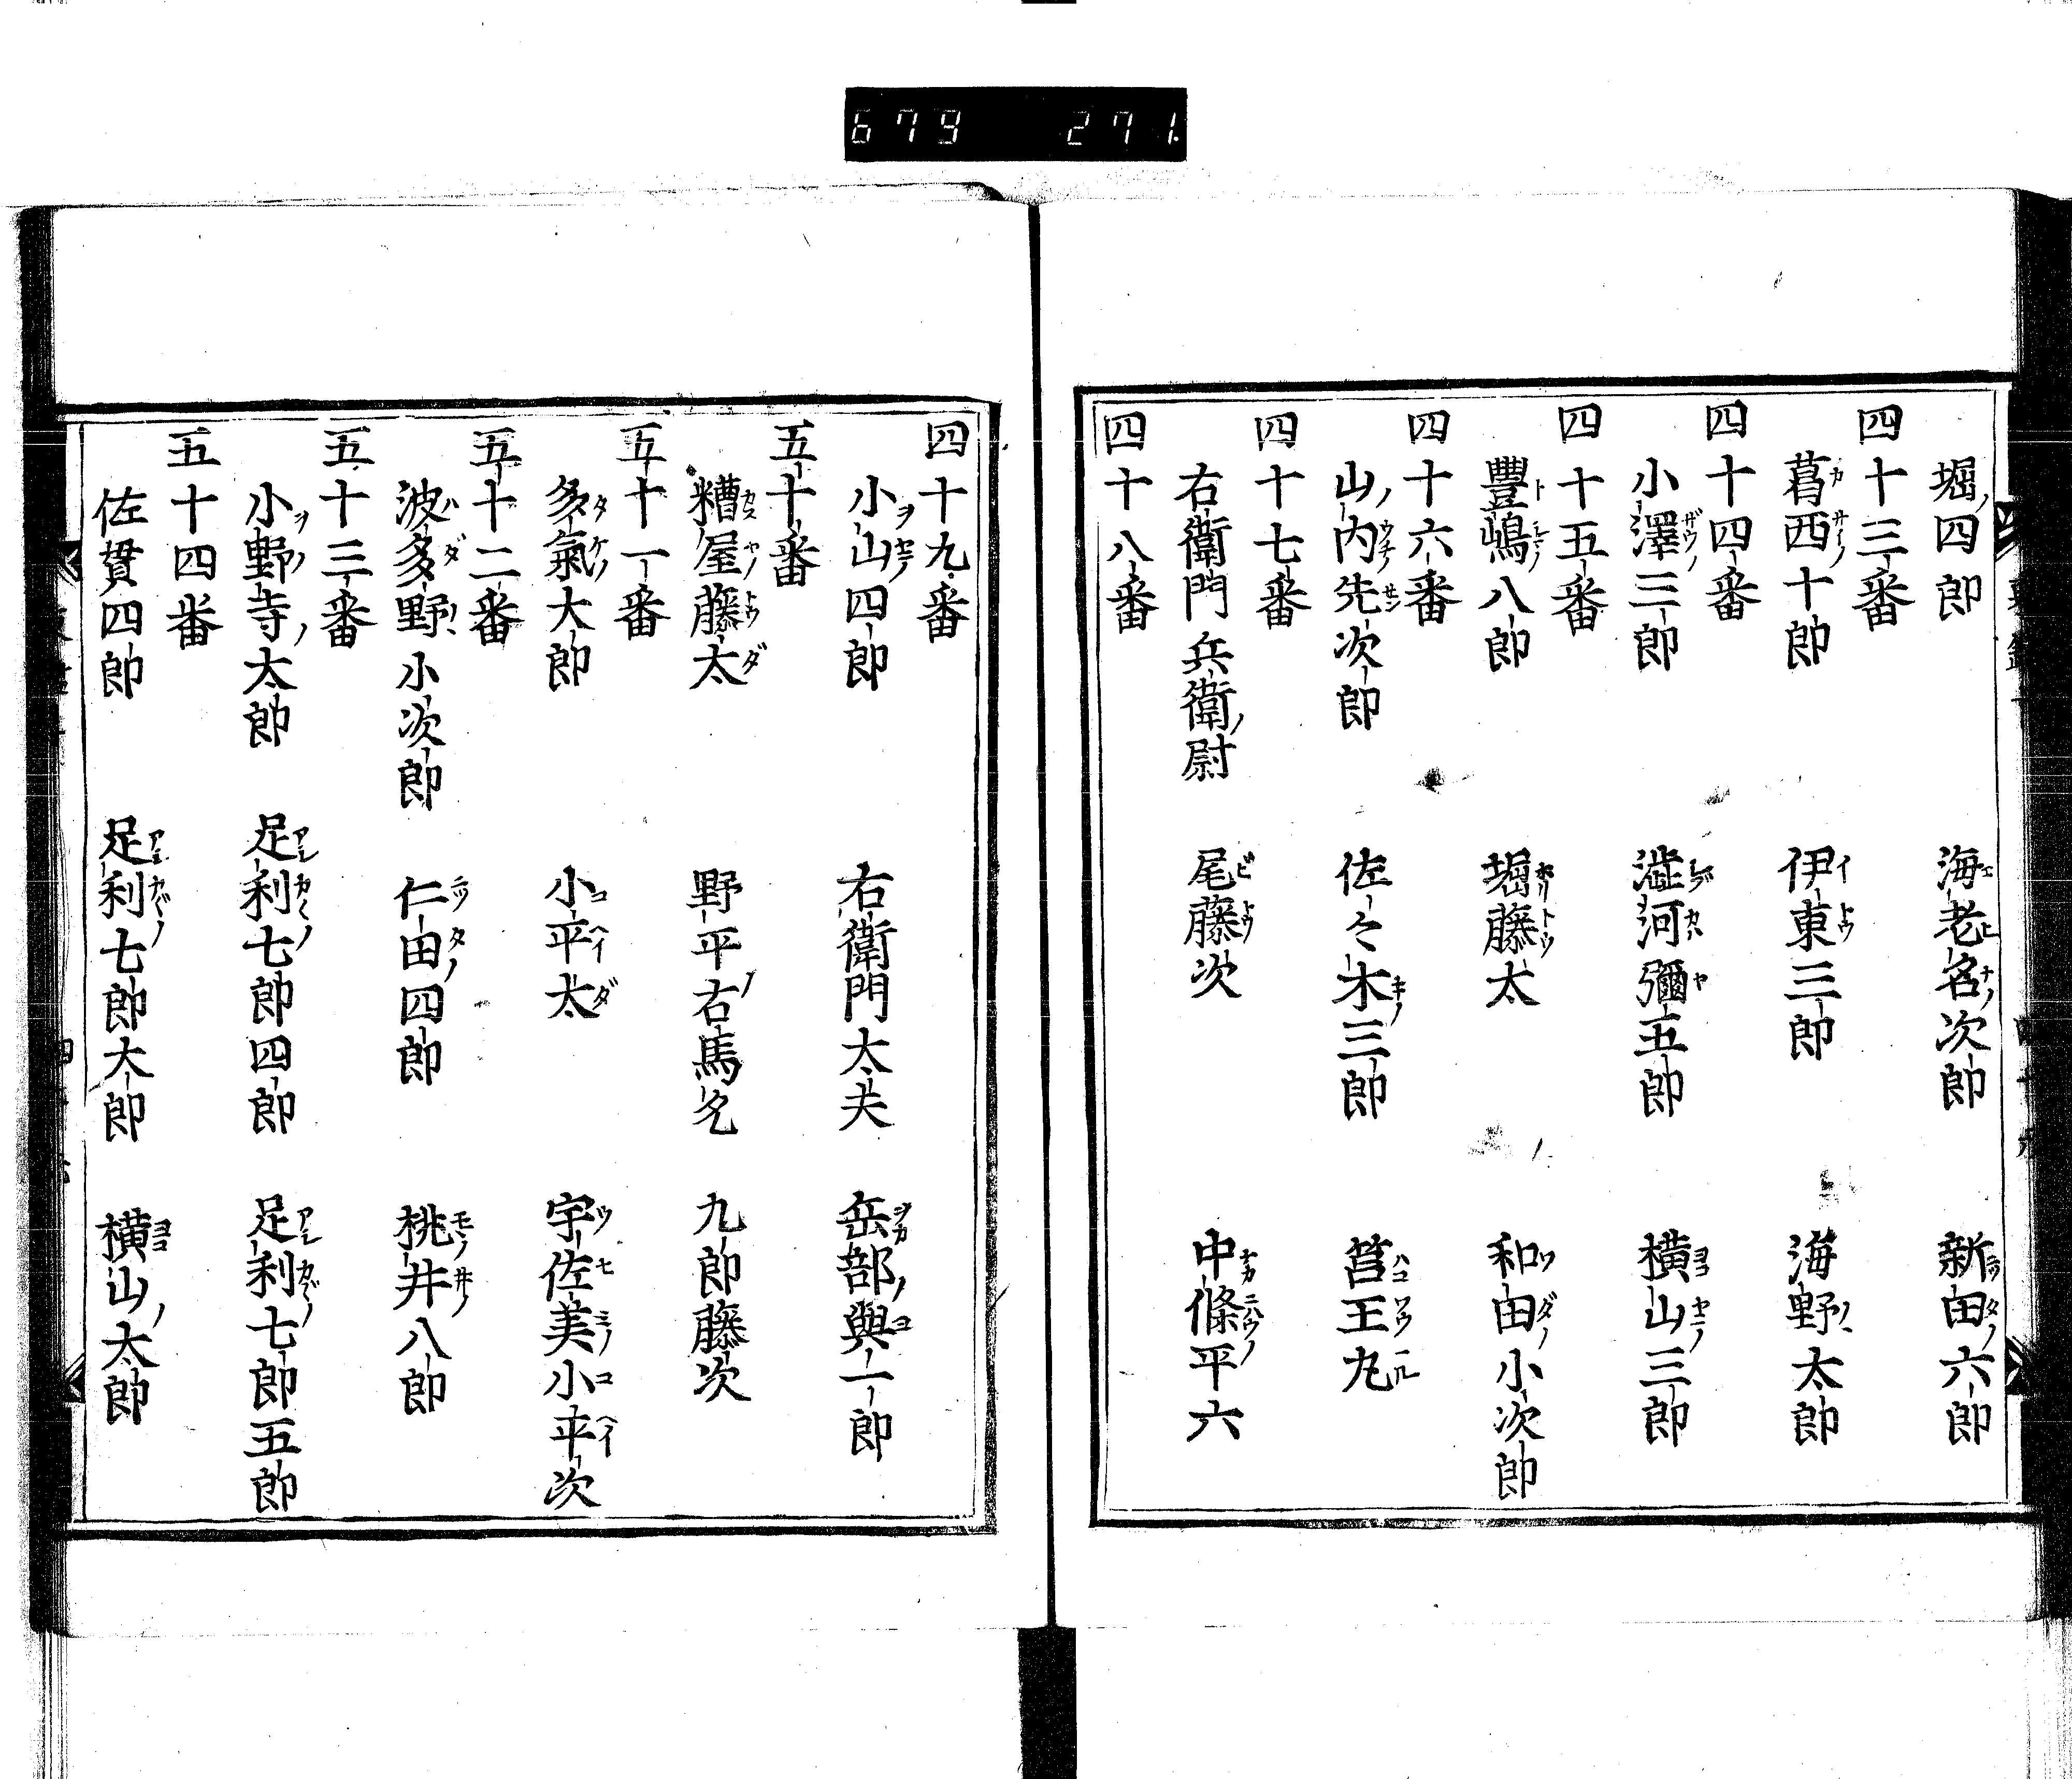 679 271
堀四郎 海老名次郎 新田六郎
四十三番
葛西十郎 伊東三郎 海野太郎
四十四番
小澤三郎 澁河彌五郎 横山三郎
四十五番
豐嶋八郎 堀藤太 和田小次郎
四十六番
山内先次郎 佐々木三郎 筥王丸
四十七番
右衛門兵衛尉 尾藤次 中條平六
四十八番
四十九番
小山四郎 右衛門太夫 岳部與一郎
五十番
糟屋藤太 野平右馬允 九郎藤次
五十一番
多氣太郎 小平太 宇佐美小平次
五十二番
波多野小次郎 仁田四郎 桃井八郎
五十三番
小野寺太郎 足利七郎四郎 足利七郎五郎
五十四番
佐貫四郎 足利七郎太郎 横山太郎